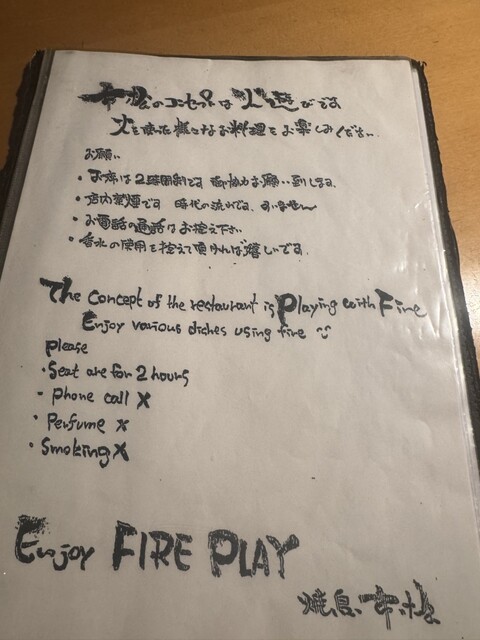 市松のコンセプトは火遊びです
火を使った様々なお料理をお楽しみください
お願い
・お席は2時間制です 御協力お願い致します、
・店内禁煙です 時代の流れです、すいません
・お電話の通話はお控え下さい
・香水の使用を控えて頂ければ嬉しいです、
The concept of the restaurant is Playing with Fire
Enjoy various dishes using fire
please
・Seat are for 2 hours
- Phone call X
・Perfume x
・Smoking X
Enjoy FIRE PLAY
焼鳥 市松